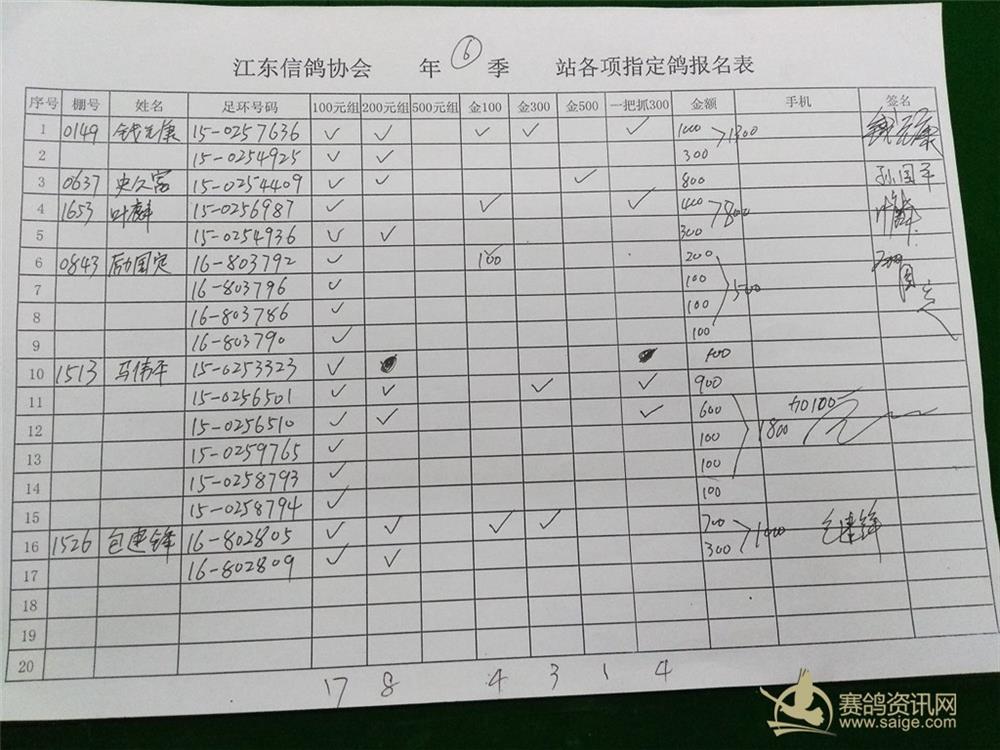 江东信鸽协会 年 ⑥ 季 站各项指定鸽报名表
序号 棚号 姓名 足环号码 100元组 200元组 500元组 金100 金300 金500 一把抓300 金额 手机 签名
1 0149 15-0257636 ✓ ✓ ✓ ✓ ✓ 1000 >1300
2 15-0254925 ✓ ✓ 300
3 0637 15-0254409 ✓ ✓ ✓ 800 孙国平
4 1653 叶麟 15-0256987 ✓ ✓ ✓ >800 叶麟
5 15-0254936 ✓ ✓ 300
6 0843 励国定 16-803792 ✓ 100 200
7 16-803796 ✓ 100 500
8 16-803786 ✓ 100
9 16-803790 ✓ 100
10 1513 马伟平 15-0253323 ✓
11 15-0256501 ✓ ✓ ✓ ✓ 900
12 15-0256510 ✓ ✓ ✓ 600 1800 加100元
13 15-0259765 ✓ 100
14 15-0258793 ✓ 100
15 15-0258794 ✓ 100
16 1526 包建锋 16-802805 ✓ ✓ ✓ ✓ 700 >1000 包建锋
17 16-802809 ✓ ✓ 300
18
19
20
17 8 4 3 1 4
赛鸽资讯网
www.saige.com